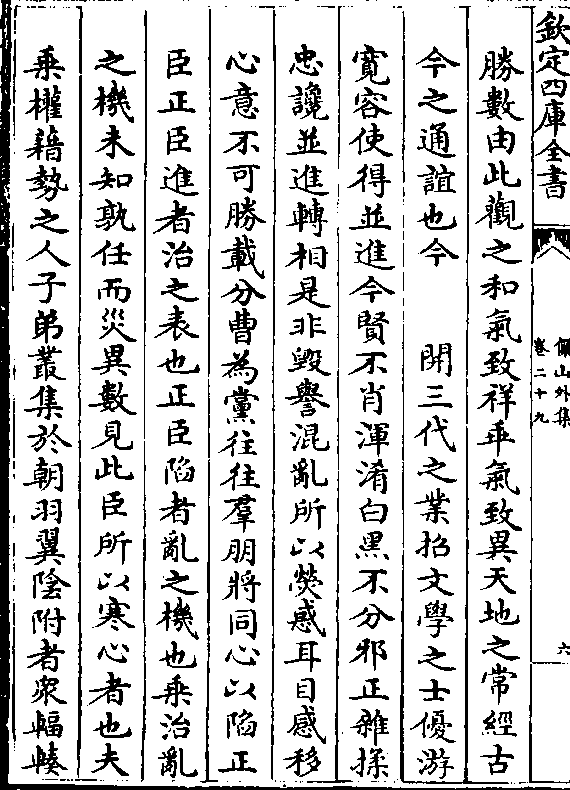 欽定四庫全書
儼山外集
卷二十九
六
勝數由此觀之和氣致祥乖氣致異天地之常經古
今之通誼也今　開三代之業招文學之士優游
寛容使得並進今賢不肖渾淆白黑不分邪正雜揉
忠讒並進轉相是非毀譽混亂所以熒惑耳目感移
心意不可勝載分曹為黨往往羣朋將同心以陷正
臣正臣進者治之表也正臣陷者亂之機也乗治亂
之機未知孰任而災異數見此臣所以寒心者也夫
乗權藉勢之人子弟叢集於朝羽翼陰附者衆輻輳